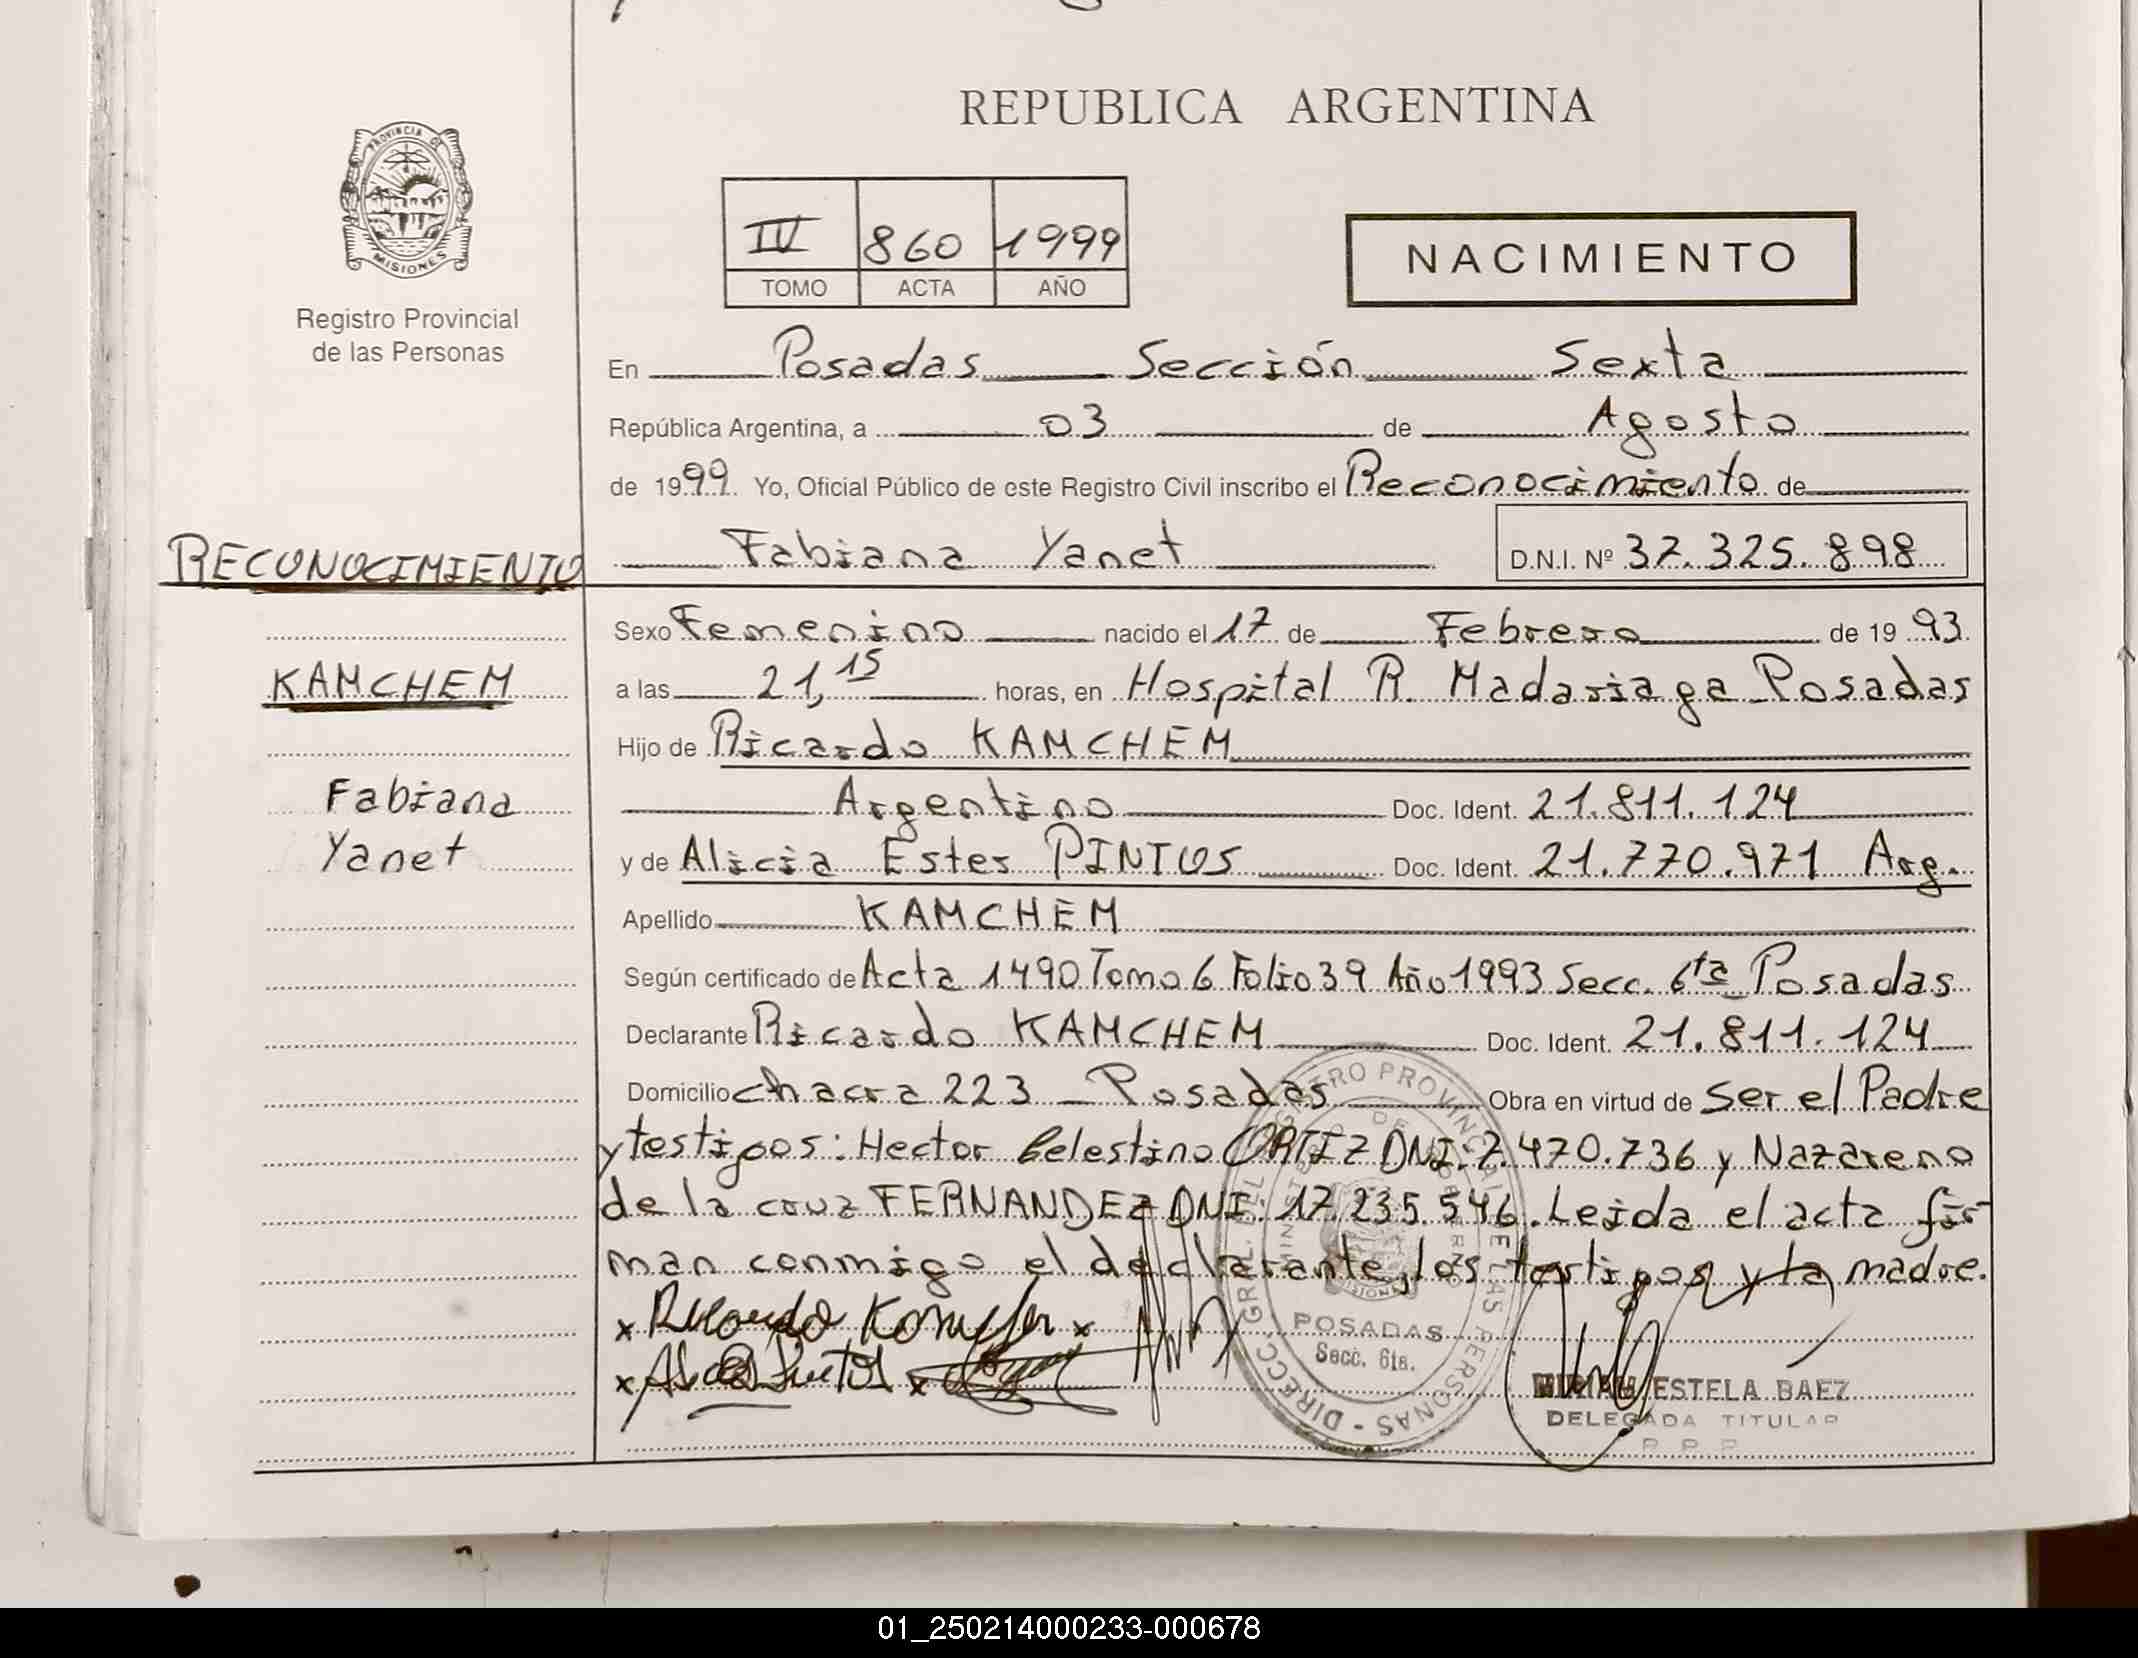 REPUBLICA ARGENTINA
PROVINCIA DE
MISIONES
Registro Provincial
de las Personas
IV 860 1999
TOMO ACTA AÑO
NACIMIENTO
En Posadas Sección Sexta
República Argentina, a 03 de Agosto
de 1999. Yo, Oficial Público de este Registro Civil inscribo el Reconocimiento de
Fabiana Yanet D.N.I. Nº 37.325.898
RECONOCIMIENTO
KAMCHEM
Fabiana
Yanet
Sexo Femenino nacido el 17 de Febrero de 1993.
a las 21,15 horas, en Hospital R. Madariaga Posadas
Hijo de Ricardo KAMCHEM
Argentino Doc. Ident. 21.811.124
y de Alicia Ester PINTOS Doc. Ident. 21.770.971 Arg.
Apellido KAMCHEM
Según certificado de Acta 1490 Tomo 6 Folio 39 Año 1993 Secc. 6ta Posadas
Declarante Ricardo KAMCHEM Doc. Ident. 21.811.124
Domicilio chacra 223 - Posadas Obra en virtud de Ser el Padre
y testigos: Hector Celestino ORTIZ DNI: 7.470.736 y Nazareno
de la cruz FERNANDEZ DNI: 17.235.546. Leida el acta fir-
man conmigo el declarante, los testigos y la madre.
DIRECC. GRAL. DEL REGISTRO PROVINCIAL DE LAS PERSONAS
MINISTERIO DE GOBIERNO
MISIONES
POSADAS
Secc. 6ta.
MIRIAM ESTELA BAEZ
DELEGADA TITULAR
R P P
01_250214000233-000678